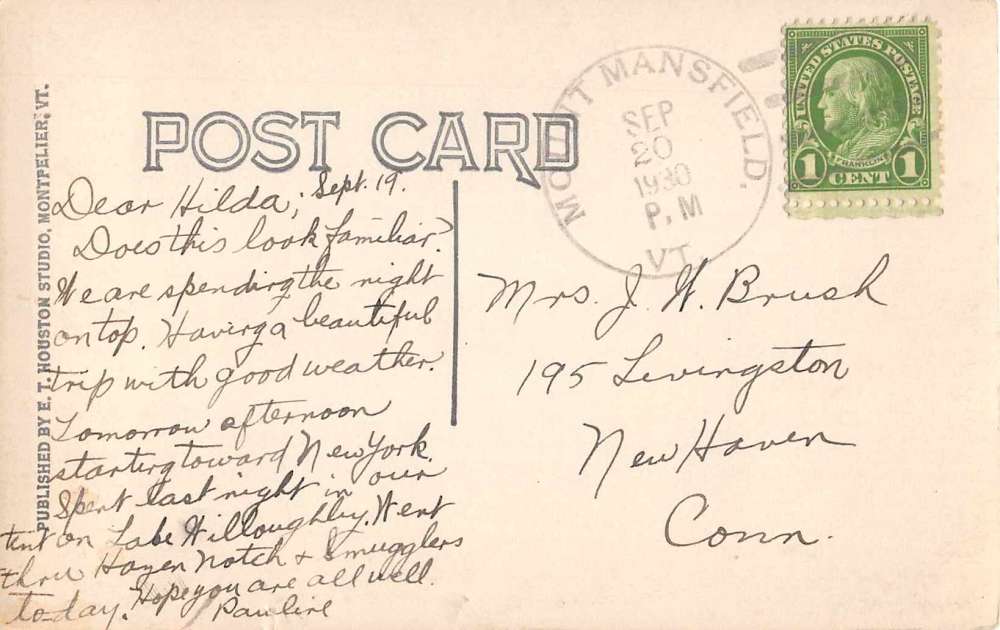 UNITED STATES POSTAGE
FRANKLIN
1 CENT 1
MOUNT MANSFIELD.
SEP
20
1930
P.M
VT
POST CARD
PUBLISHED BY E. T. HOUSTON STUDIO, MONTPELIER, VT.
Sept. 19.
Dear Hilda;
Does this look familiar?
We are spending the night
on top. Having a beautiful
trip with good weather.
Tomorrow afternoon
starting toward New York.
Spent last night in our
tent on Lake Willoughby. Went
thru Hazen Notch & Smugglers
to-day. Hope you are all well.
Pauline
Mrs. J. W. Brush
195 Livingston
New Haven
Conn.